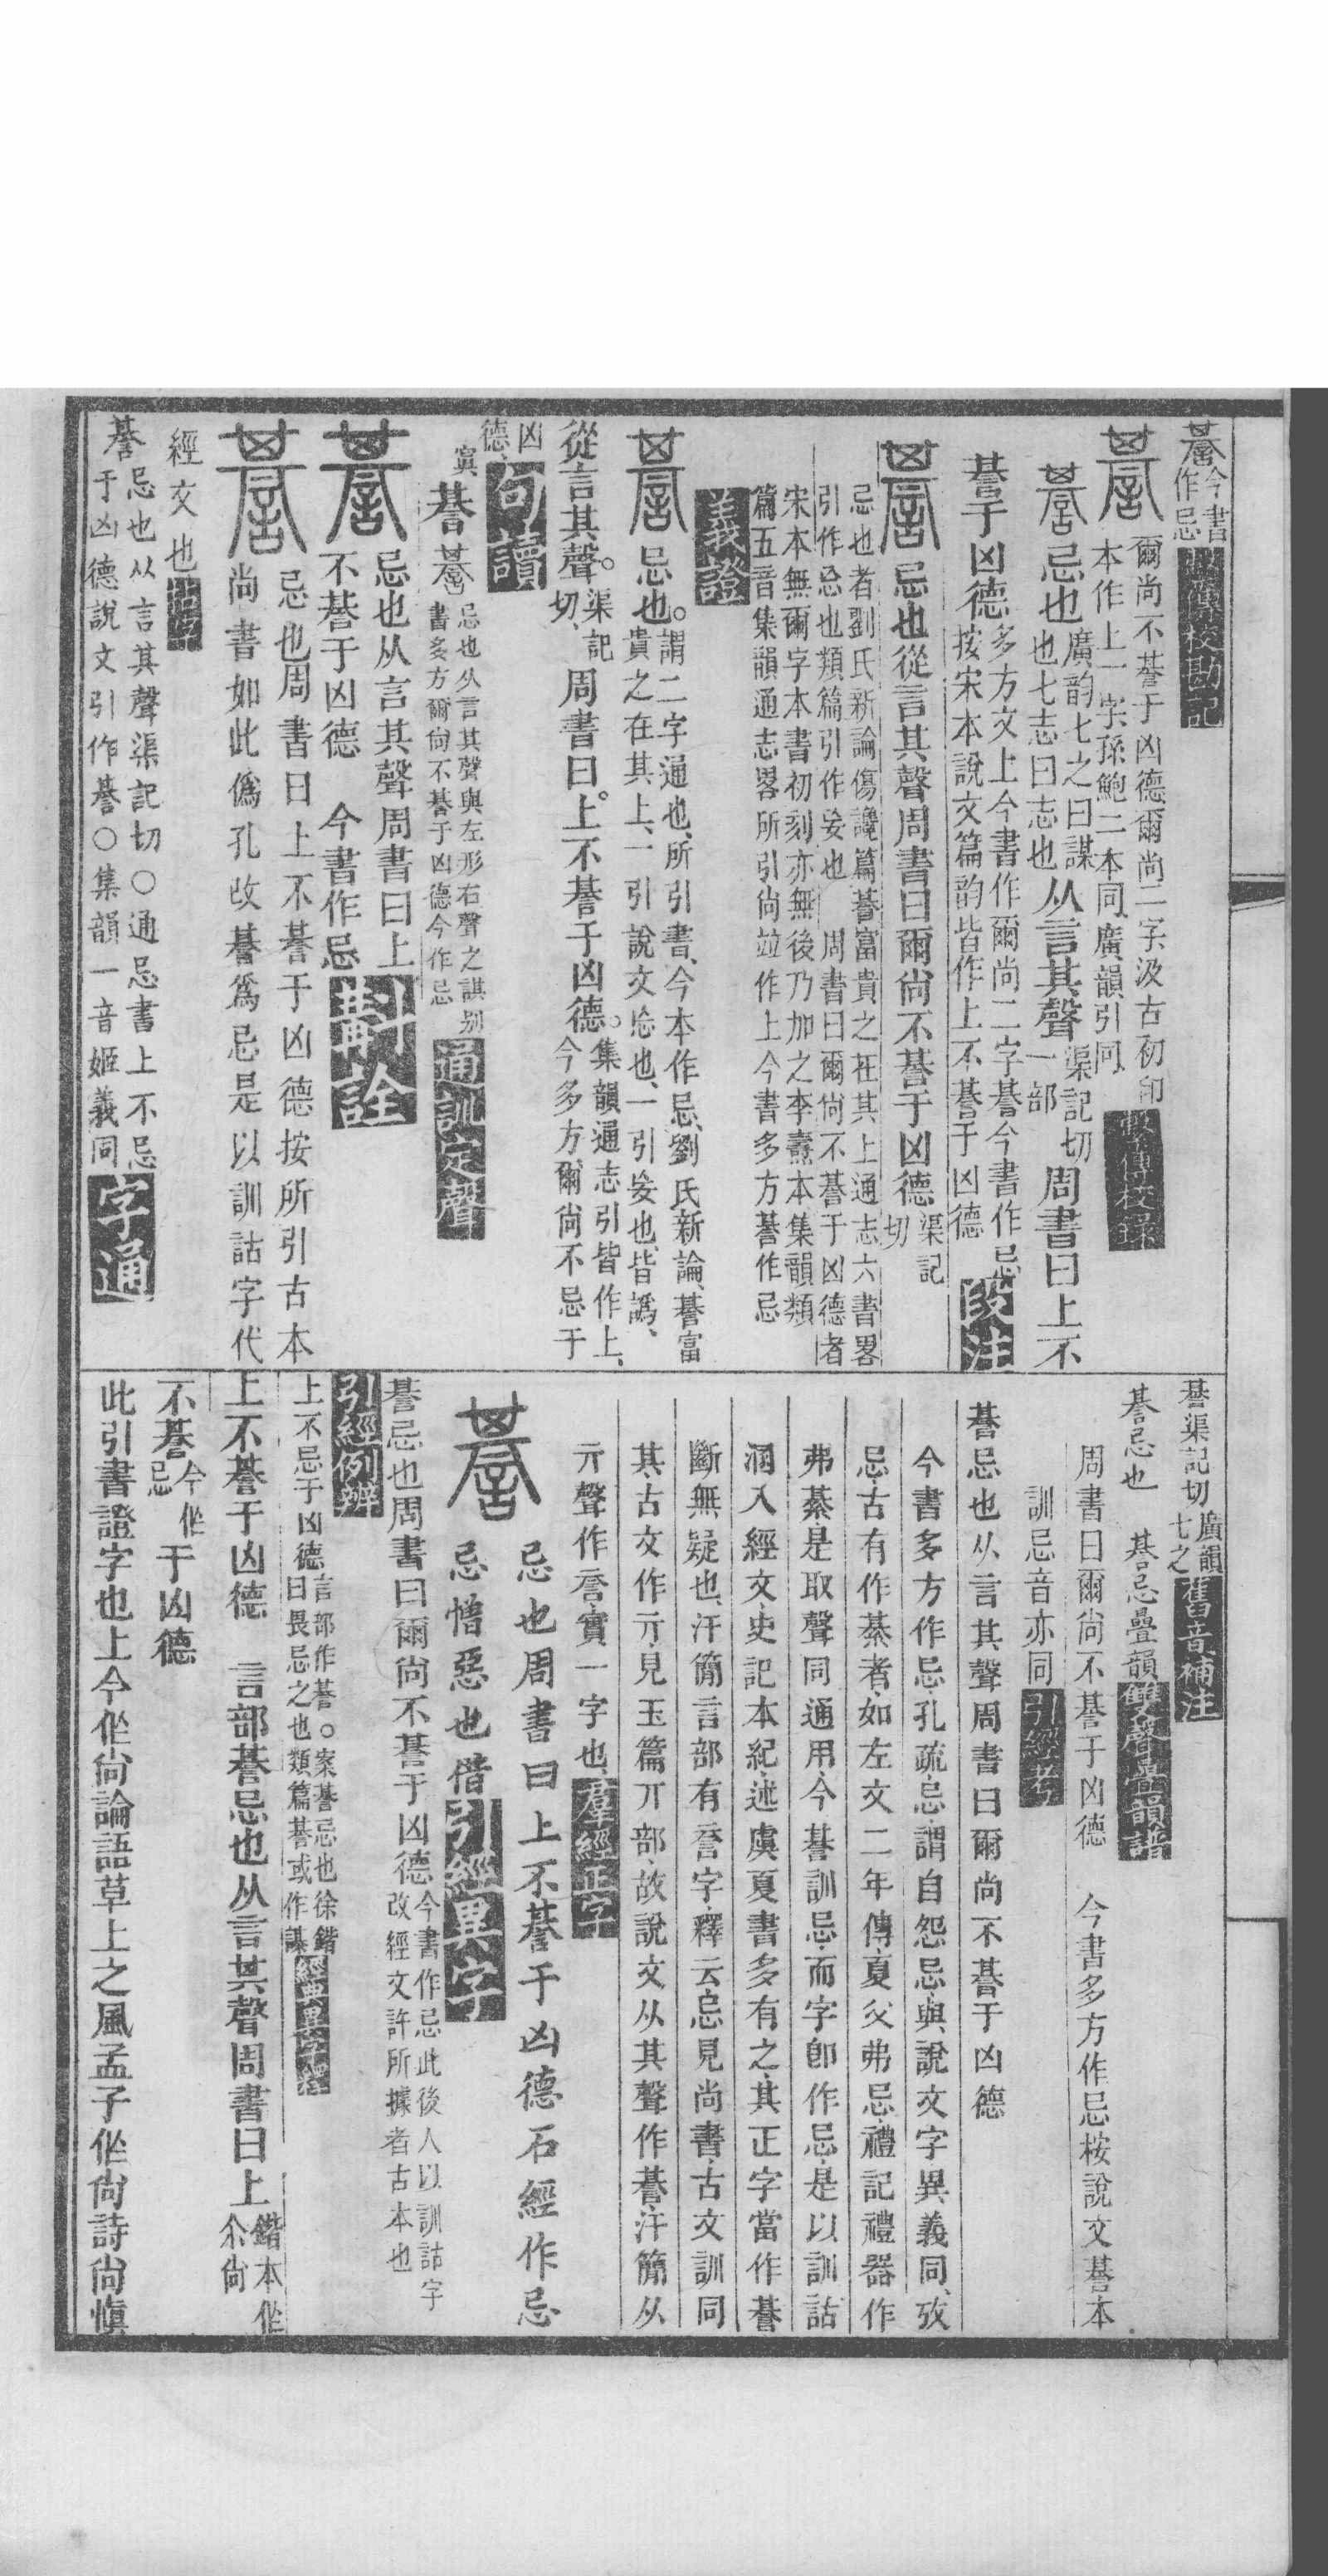 諅今書
作忌
爾尚不諅于凶德爾尚二字汲古初印
本作上一字孫鮑二本同廣韻引同
忌也廣韵七之曰謀
也七志曰志也从言其聲渠記切
一部周書曰上不
諅于凶德多方文上今書作爾尚二字諅今書作忌
按宋本說文篇韵皆作上不諅于凶德段注
忌也從言其聲周書曰爾尚不諅于凶德渠記
切
忌也者劉氏新論傷讒篇諅富貴之在其上通志六書畧
引作忩也類篇引作妄也 周書曰爾尚不諅于凶德者
宋本無爾字本書初刻亦無後乃加之李燾本集韻類
篇五音集韻通志畧所引尚竝作上今書多方諅作忌
義證
忌也。謂二字通也、所引書、今本作忌、劉氏新論、諅富
貴之在其上、一引說文忩也、一引妄也、皆譌、
從言其聲。渠記
切、周書曰。上不諅于凶德。集韻通志引皆作上、
今多方、爾尚不忌于
凶
德、句讀
諅忌也从言其聲與左形右聲之諆別
書多方爾尚不諅于凶德今作忌通訓定聲
忌也从言其聲周書曰上
不諅于凶德 今書作忌斠詮
忌也周書曰上不諅于凶德按所引古本
尚書如此僞孔改諅爲忌是以訓詁字代
經文也古字
諅忌也从言其聲渠記切○通忌書上不忌
于凶德說文引作諅○集韻一音姬義同字通
諅渠記切廣韻
七之舊音補注
諅忌也 諅忌疊韻雙聲疊韻譜
周書曰爾尚不諅于凶德 今書多方作忌桉說文諅本
訓忌音亦同引經考
諅忌也从言其聲周書曰爾尚不諅于凶德
今書多方作忌孔疏忌謂自怨忌與說文字異義同、攷
忌古有作綦者如左文二年傳夏父弗忌禮記禮器作
弗綦是取聲同通用今諅訓忌而字卽作忌是以訓詁
溷入經文史記本紀述虞夏書多有之其正字當作諅
斷無疑也、汗簡言部有䛊字釋云忌見尚書古文訓同
其古文作亓見玉篇丌部故說文从其聲作諅汗簡从
亓聲作䛊實一字也、羣經正字
忌也周書曰上不諅于凶德石經作忌
忌憎惡也偕引經異字
諅忌也周書曰爾尚不諅于凶德今書作忌此後人以訓詁字
改經文許所據者古本也
引經例辨
上不忌于凶德言部作諅。案諅忌也徐鍇
曰畏忌之也類篇諅或作諆
上不諅于凶德 言部諅忌也从言其聲周書曰上鍇本作
尒尚
不諅今作
忌于凶德
此引書證字也上今作尚論語草上之風孟子作尚詩尚愼